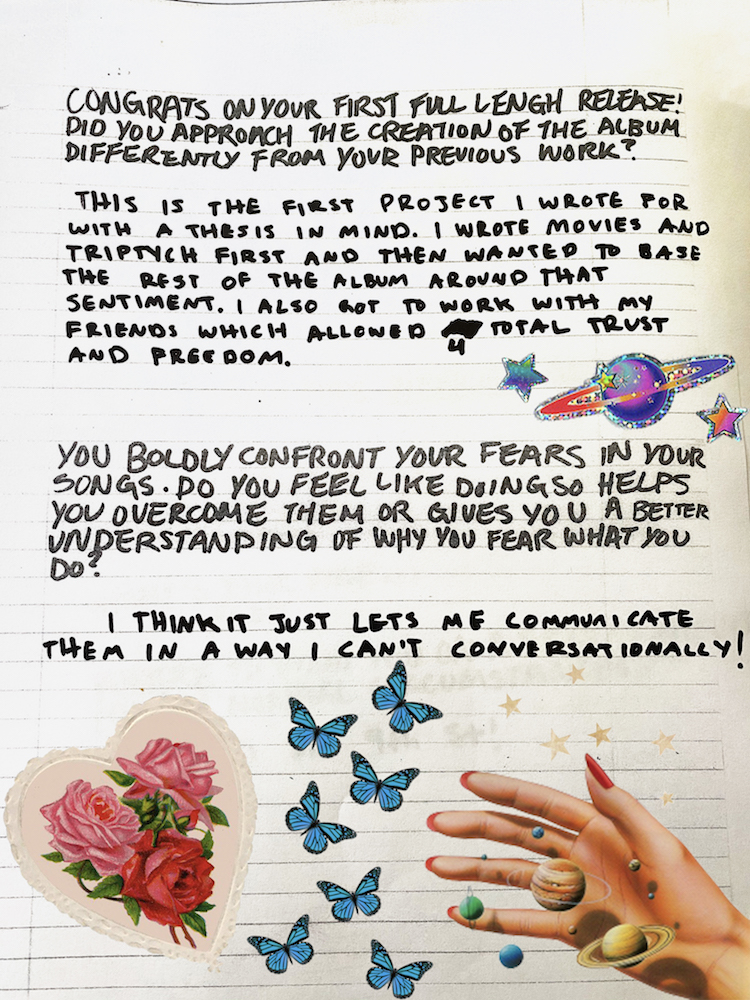 CONGRATS ON YOUR FIRST FULL LENGH RELEASE!
DID YOU APPROACH THE CREATION OF THE ALBUM
DIFFERENTLY FROM YOUR PREVIOUS WORK?
THIS IS THE FIRST PROJECT I WROTE FOR
WITH A THESIS IN MIND. I WROTE MOVIES AND
TRIPTYCH FIRST AND THEN WANTED TO BASE
THE REST OF THE ALBUM AROUND THAT
SENTIMENT. I ALSO GOT TO WORK WITH MY
FRIENDS WHICH ALLOWED 4 TOTAL TRUST
AND FREEDOM.
YOU BOLDLY CONFRONT YOUR FEARS IN YOUR
SONGS. DO YOU FEEL LIKE DOING SO HELPS
YOU OVERCOME THEM OR GIVES YOU A BETTER
UNDERSTANDING OF WHY YOU FEAR WHAT YOU
DO?
I THINK IT JUST LETS ME COMMUNICATE
THEM IN A WAY I CAN'T CONVERSATIONALLY!